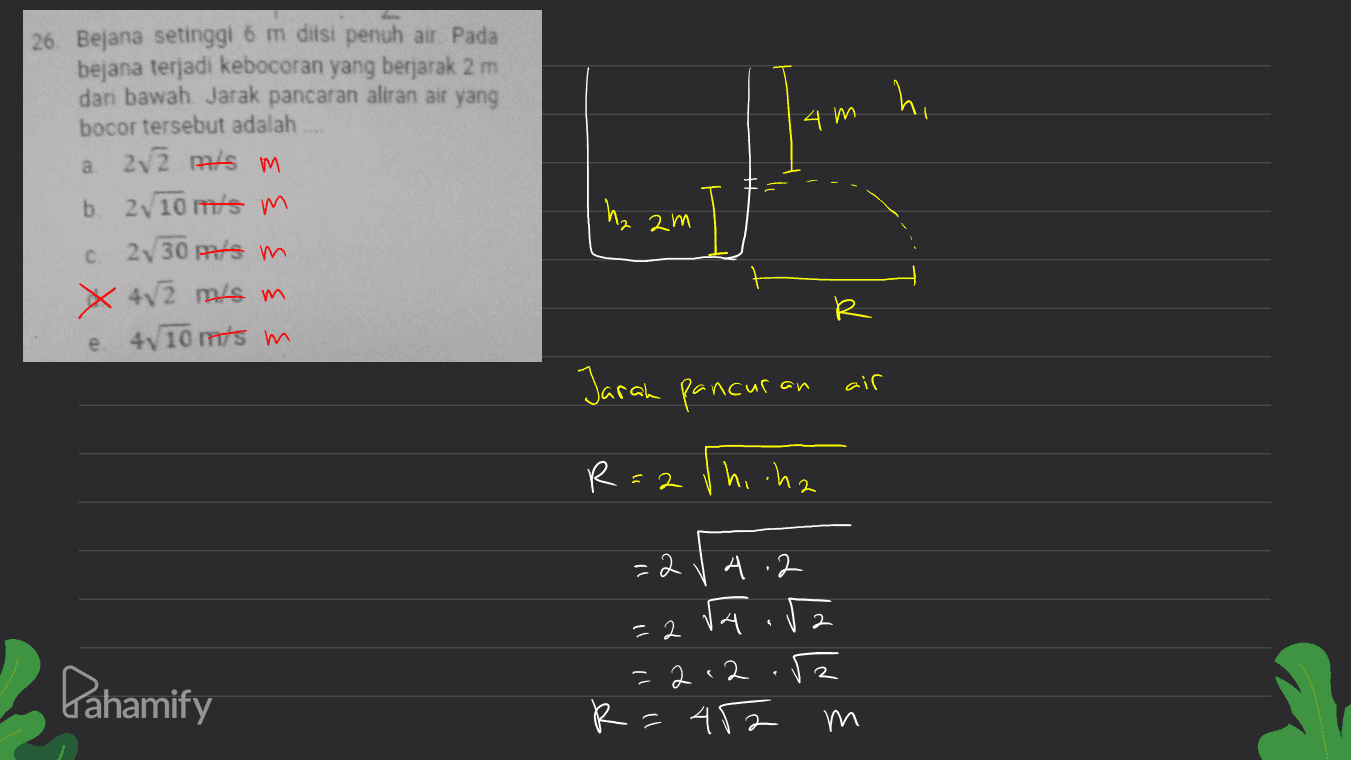 26. Bejana setinggi 6 m diisi penuh air. Pada
bejana terjadi kebocoran yang berjarak 2 m
dari bawah. Jarak pancaran aliran air yang
bocor tersebut adalah ....
a. 2√2 m/s m
b. 2√10 m/s m
c. 2√30 m/s m
d. 4√2 m/s m
e. 4√10 m/s m
4 m h₁
h₂ 2m
R
Jarak pancuran air
R = 2 √h₁·h₂
= 2 √4·2
= 2 √4 · √2
= 2·2·√2
R = 4√2 m
Pahamify